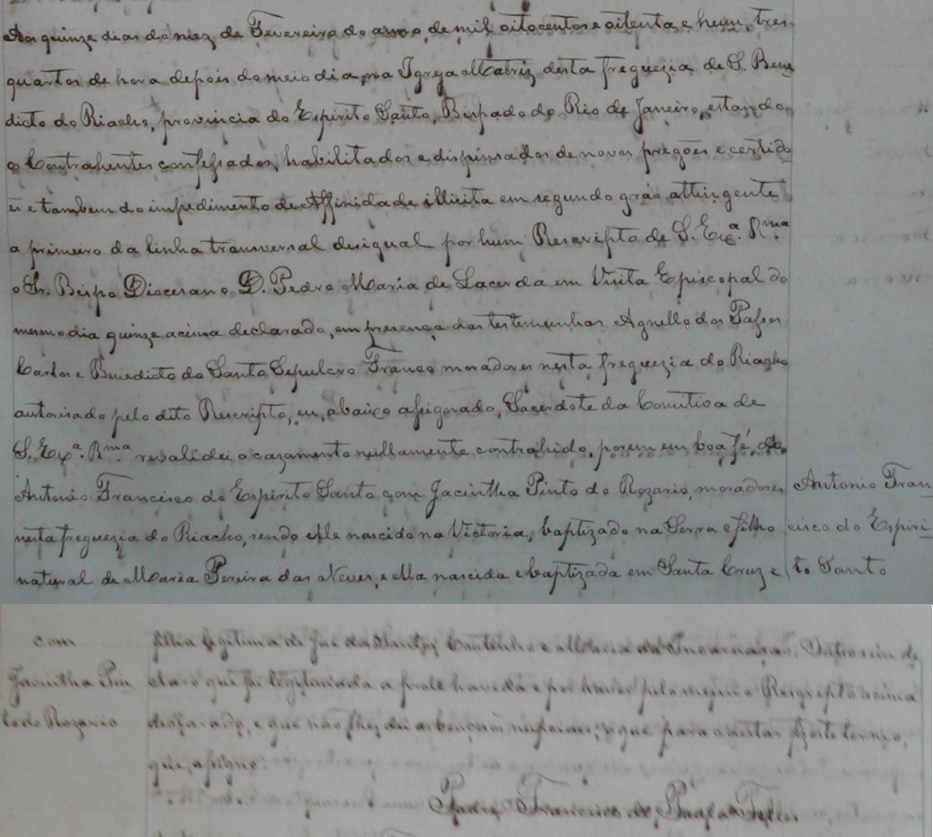 Aos quinze dias do mez de Fevereiro do anno de mil oitocentos e oitenta e hum, tres
quartos de hora depois do meio dia, na Igreja Matriz desta freguezia de S. Bene
dicto do Riacho, provincia do Espirito Santo, Bispado do Rio de Janeiro, estando
o Contrahentes confessados, habilitados e dispensados de novos pregões e certido
es e tambem do impedimento de Affinidade illicita em segundo gráo attingente
a primeiro da linha transversal desigual por hum Rescripto de S. Exª. Rma
o Sr. Bispo Diocesano D. Pedro Maria de Lacerda em Visita Episcopal do
mesmo dia quinze acima declarado, em presença das testemunhas Agnello dos Passos
e Benedicto do Santo Sepulcro Franco moradores nesta freguezia do Riacho
autorisado pelo dito Rescripto, eu, abaixo assignado, Sacerdote da Comitiva de
S. Exª. Rma revalidei o cazamento nullamente contrahido, porem em boa fé, de
Antonio Francisco do Espirito Santo com Jacintha Pinto do Rozario, moradores
nesta freguezia do Riacho, sendo elle nascido na Victoria, baptizado na Serra e filho
natural de Maria Pereira das Neves, e ella nascida e baptizada em Santa Cruz e
Antonio Fran-
cisco do Espiri-
to Santo
com
Jacintha Pin
to do Rozario
filha legitima de dos Santos Coutinho e Maria da Incarnação. Outrosim de
claro que foi legitimada a prole havida e por haver pelo mesmo Rescripto acima
declarado, e que não lhes dei as bençãos nupciaes; e que para constar fiz este termo,
que assigno.
Padre Francisco de Paula Telles